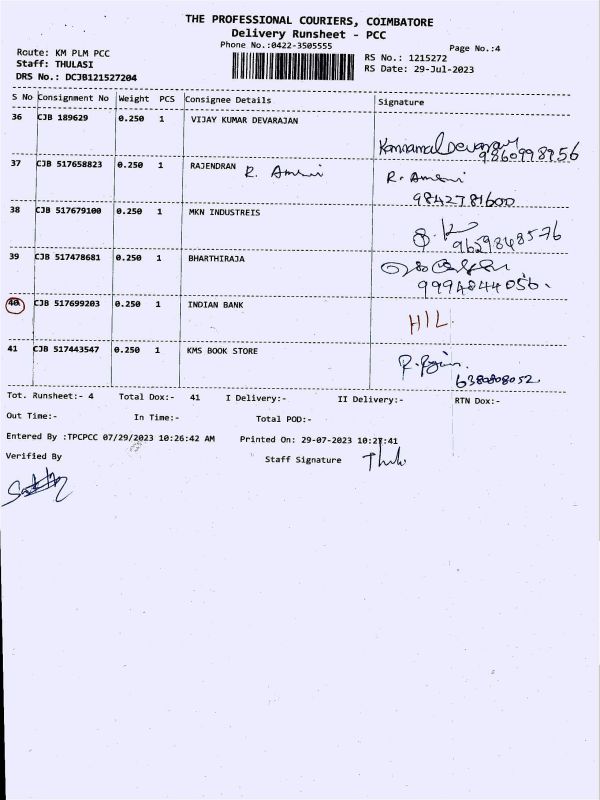 THE PROFESSIONAL COURIERS, COIMBATORE
Delivery Runsheet - PCC
Phone No.:0422-3505555
Page No.:4
Route: KM PLM PCC
Staff: THULASI
DRS No.: DCJB121527204
RS No.: 1215272
RS Date: 29-Jul-2023
S No Consignment No Weight PCS Consignee Details Signature
36 CJB 189629 0.250 1 VIJAY KUMAR DEVARAJAN
Kannamal Devarajan
9860998956
37 CJB 517658823 0.250 1 RAJENDRAN R. Amsni R. Amsni
9842781600
38 CJB 517679100 0.250 1 MKN INDUSTREIS
9629848576
39 CJB 517478681 0.250 1 BHARTHIRAJA
9994044056.
40 CJB 517699203 0.250 1 INDIAN BANK
HIL
41 CJB 517443547 0.250 1 KMS BOOK STORE
6380808052
Tot. Runsheet:- 4 Total Dox:- 41 I Delivery:- II Delivery:- RTN Dox:-
Out Time:- In Time:- Total POD:-
Entered By :TPCPCC 07/29/2023 10:26:42 AM Printed On: 29-07-2023 10:27:41
Verified By Staff Signature Thulsi